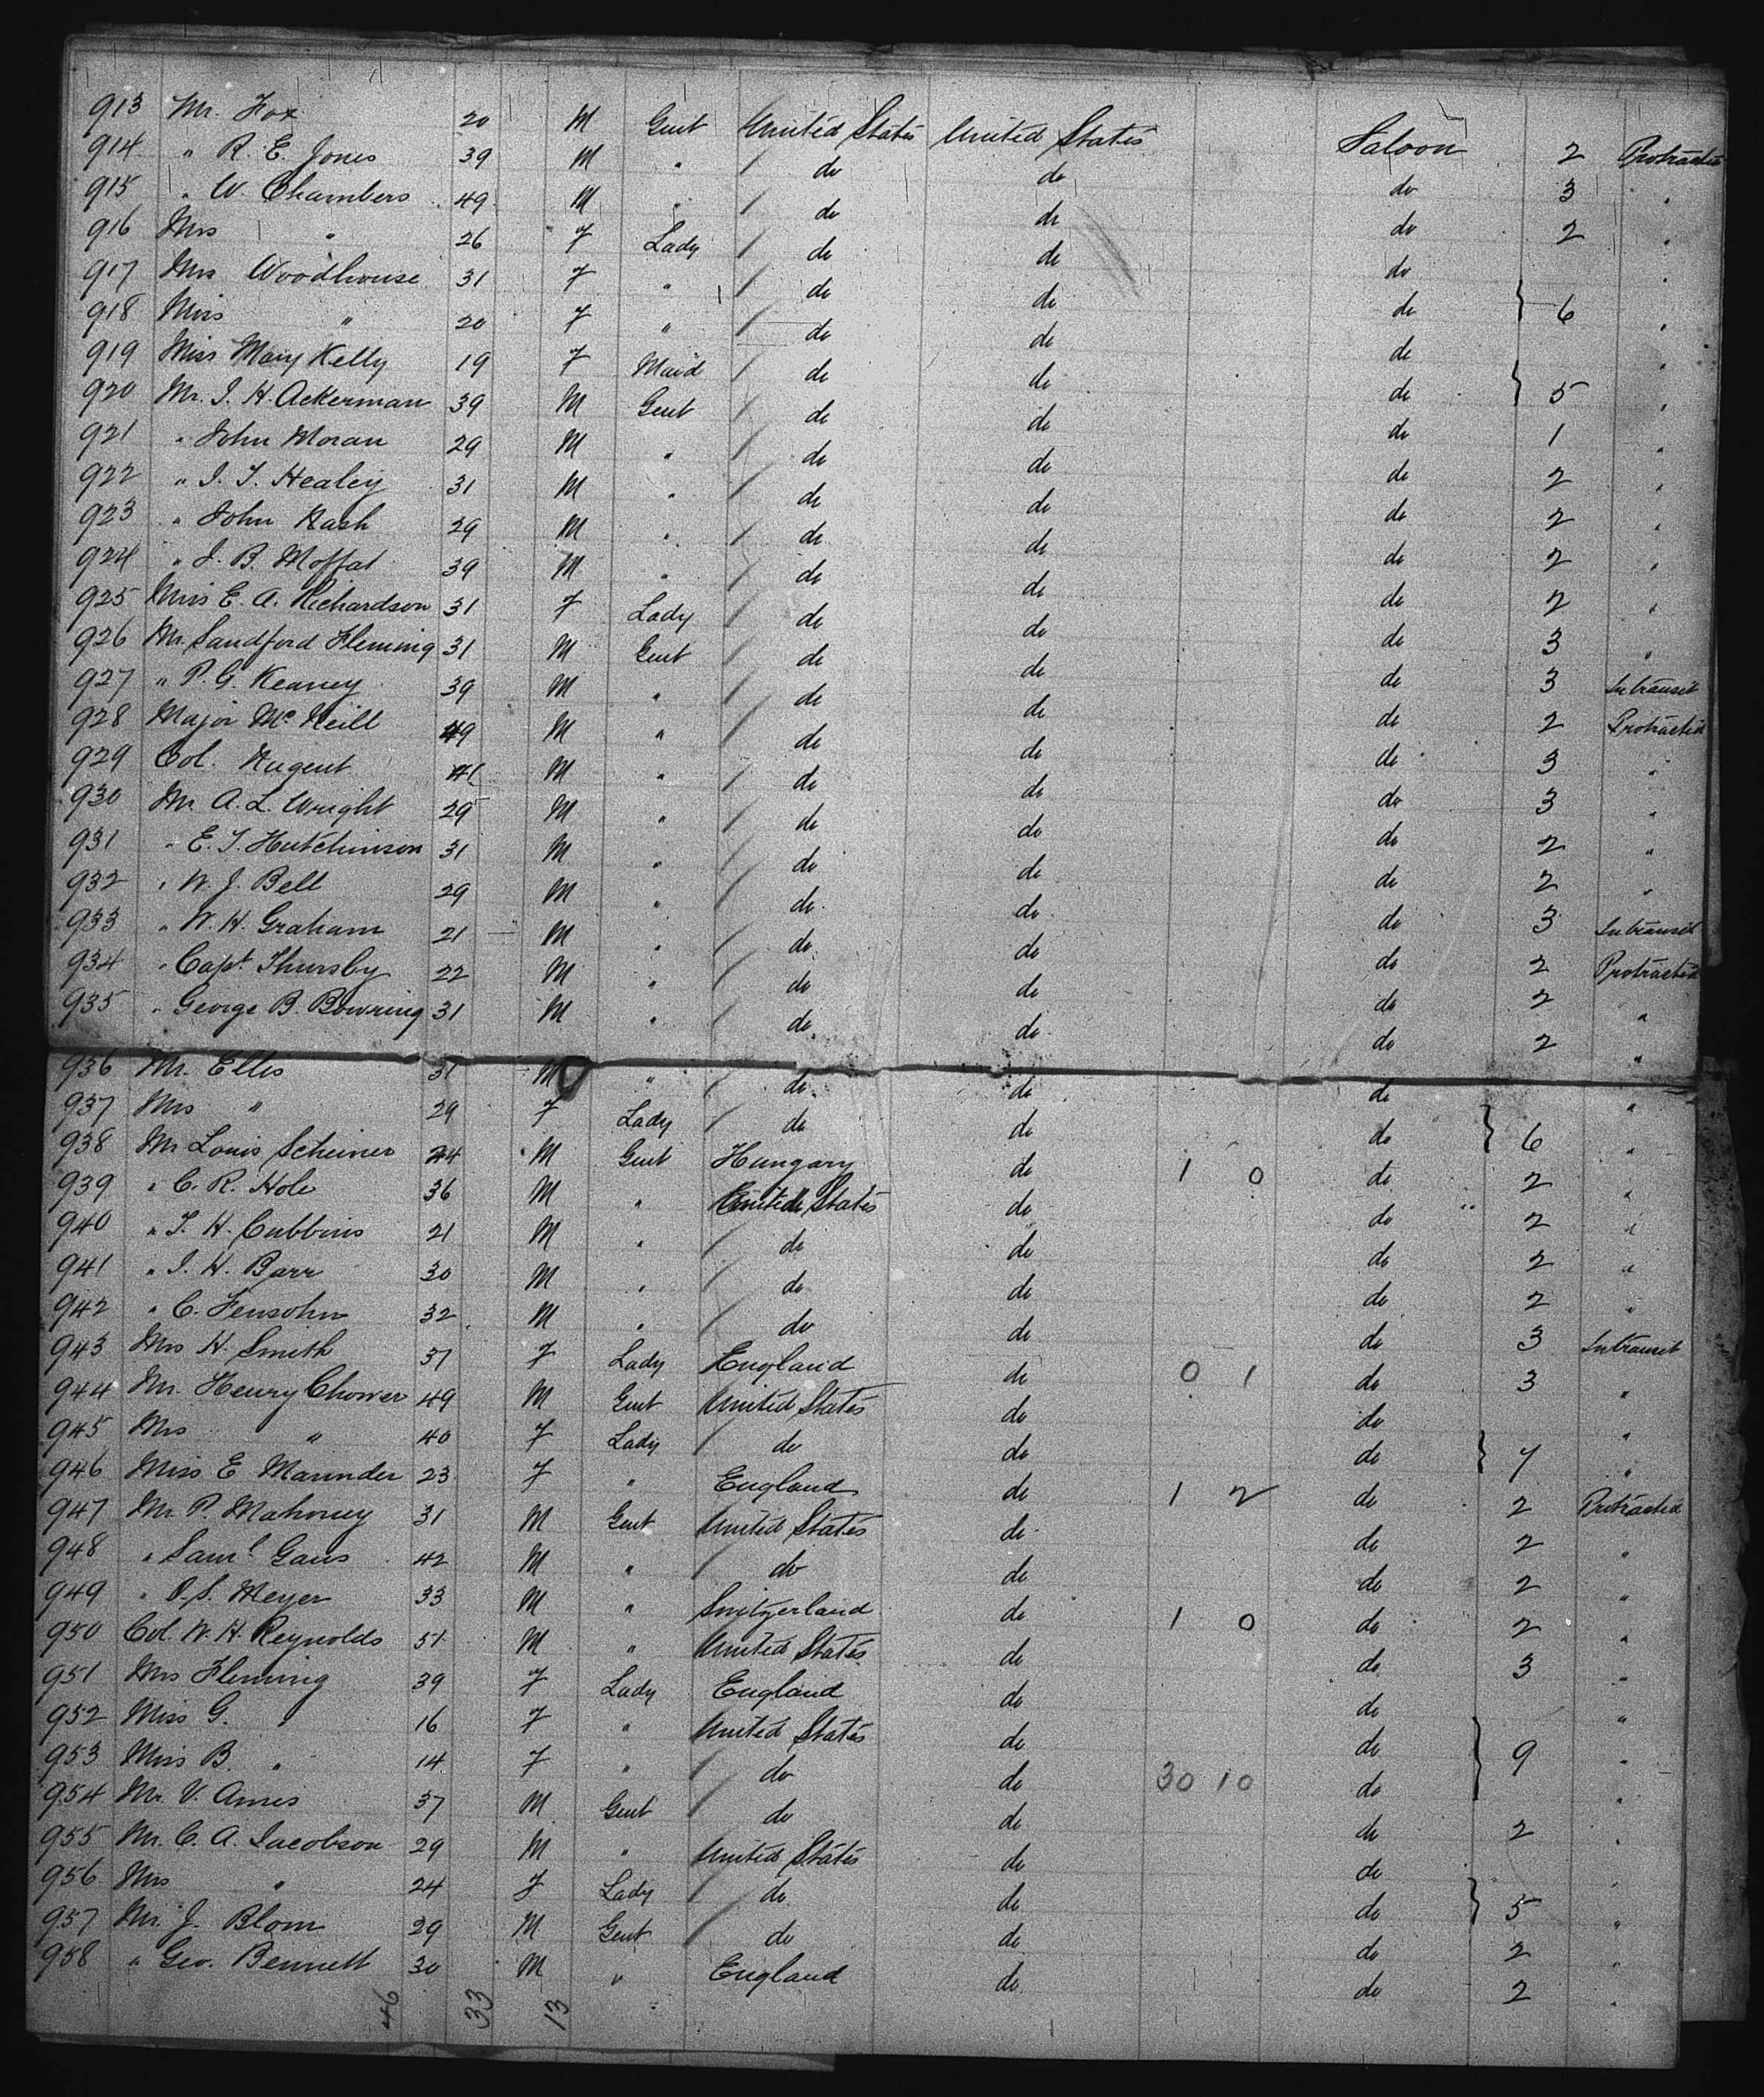 913 Mr. Fox 20 M Gent United States United States Saloon 2 Protracted
914 " R. E. Jones 39 M " / do do do 3 "
915 " W. Chambers 49 M " / do do do 2 "
916 Mrs " 26 F Lady / do do do "
917 Mrs Woodhouse 31 F " / do do do } 6 "
918 Miss " 20 F " / do do do "
919 Miss Mary Kelly 19 F Maid / do do do } 5 "
920 Mr. I. H. Ackerman 39 M Gent / do do do 1 "
921 " John Moran 29 M " / do do do 2 "
922 " I. T. Healey 31 M " / do do do 2 "
923 " John Nash 29 M " / do do do 2 "
924 " J. B. Moffat 39 M " / do do do 2 "
925 Miss E. A. Richardson 31 F Lady / do do do 3 "
926 Mr Sandford Fleming 31 M Gent / do do do 3 Intransit
927 " P. G. Keaney 39 M " / do do do 2 Protracted
928 Major Mc Neill 49 M " / do do do 3 "
929 Col. Nugent M " / do do do 3 "
930 Mr A. L. Wright 29 M " / do do do 2 "
931 " E. T. Hutchinson 31 M " / do do do 2 "
932 " W. J. Bell 29 M " / do do do 3 Intransit
933 " W. H. Graham 21 M " / do do do 2 Protracted
934 " Capt Thursby 22 M " / do do do 2 "
935 " George B. Bowring 31 M " / do do do 2 "
936 Mr. Ellis 31 M " / do do do "
937 Mrs " 29 F Lady / do do do } 6 "
938 Mr Louis Scheiner 44 M Gent Hungary do 1 0 do 2 "
939 " C. R. Hole 36 M " United States do do 2 "
940 " T. H. Cubbins 21 M " / do do do 2 "
941 " I. H. Barr 30 M " / do do do 2 "
942 " C. Fensohn 32 M " / do do do 3 Intransit
943 Mrs H. Smith 37 F Lady England do 0 1 do 3 "
944 Mr. Henry Chower 49 M Gent United States do do "
945 Mrs " 40 F Lady / do do do } 7 "
946 Miss E Maunder 23 F " England do 1 2 do 2 Protracted
947 Mr P. Mahoney 31 M Gent United States do do 2 "
948 " Saml Gans 42 M " / do do do 2 "
949 " O. S. Meyer 33 M " Switzerland do 1 0 do 2 "
950 Col. W. H. Reynolds 51 M " United States do do 3 "
951 Mrs Fleming 39 F Lady England do do "
952 Miss G. " 16 F " United States do do } 9 "
953 Miss B. " 14 F " / do do 30 10 do "
954 Mr V. Ames 37 M Gent / do do do 2 "
955 Mr. C. A. Jacobson 29 M " United States do do "
956 Mrs " 24 F Lady / do do do } 5 "
957 Mr. J. Blom 29 M Gent / do do do 2 "
958 " Geo. Bennett 30 M " England do do 2 "
46 33 13